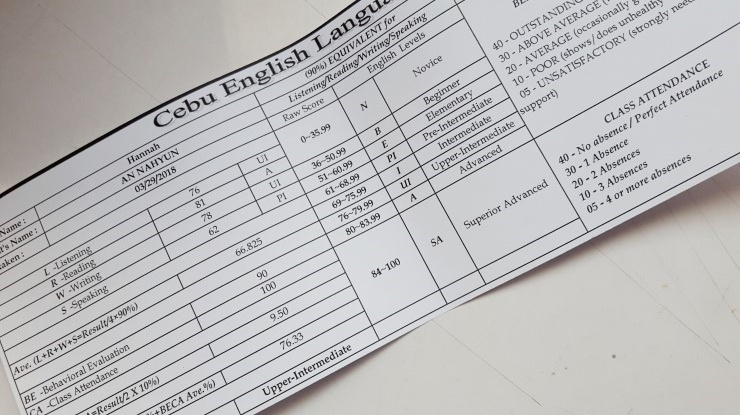 Cebu English Langua
Name : Hannah
's Name : AN NAHYUN
aken : 03/29/2018
L -Listening 76 UI
R -Reading 81 A
W -Writing 78 UI
S -Speaking 62 PI
Ave. (L+R+W+S=Result/4×90%) 66.825
BE -Behavioral Evaluation 90
CA -Class Attendance 100
A=Result/2 X 10%) 9.50
+BECA Ave.%) 76.33
Upper-Intermediate
(90%) EQUIVALENT for
Listening/Reading/Writing/Speaking
Raw Score English Levels
0~35.99 N Novice
36~50.99 B Beginner
51~60.99 E Elementary
61~68.99 PI Pre-Intermediate
69~75.99 I Intermediate
76~79.99 UI Upper-Intermediate
80~83.99 A Advanced
84~100 SA Superior Advanced
BE
40 - OUTSTANDING
30 - ABOVE AVERAGE (
20 - AVERAGE (occasionally g
10 - POOR (shows/does unhealthy
05 - UNSATISFACTORY (strongly nee
support)
CLASS ATTENDANCE
40 - No absence / Perfect Attendance
30 - 1 Absence
20 - 2 Absences
10 - 3 Absences
05 - 4 or more absences